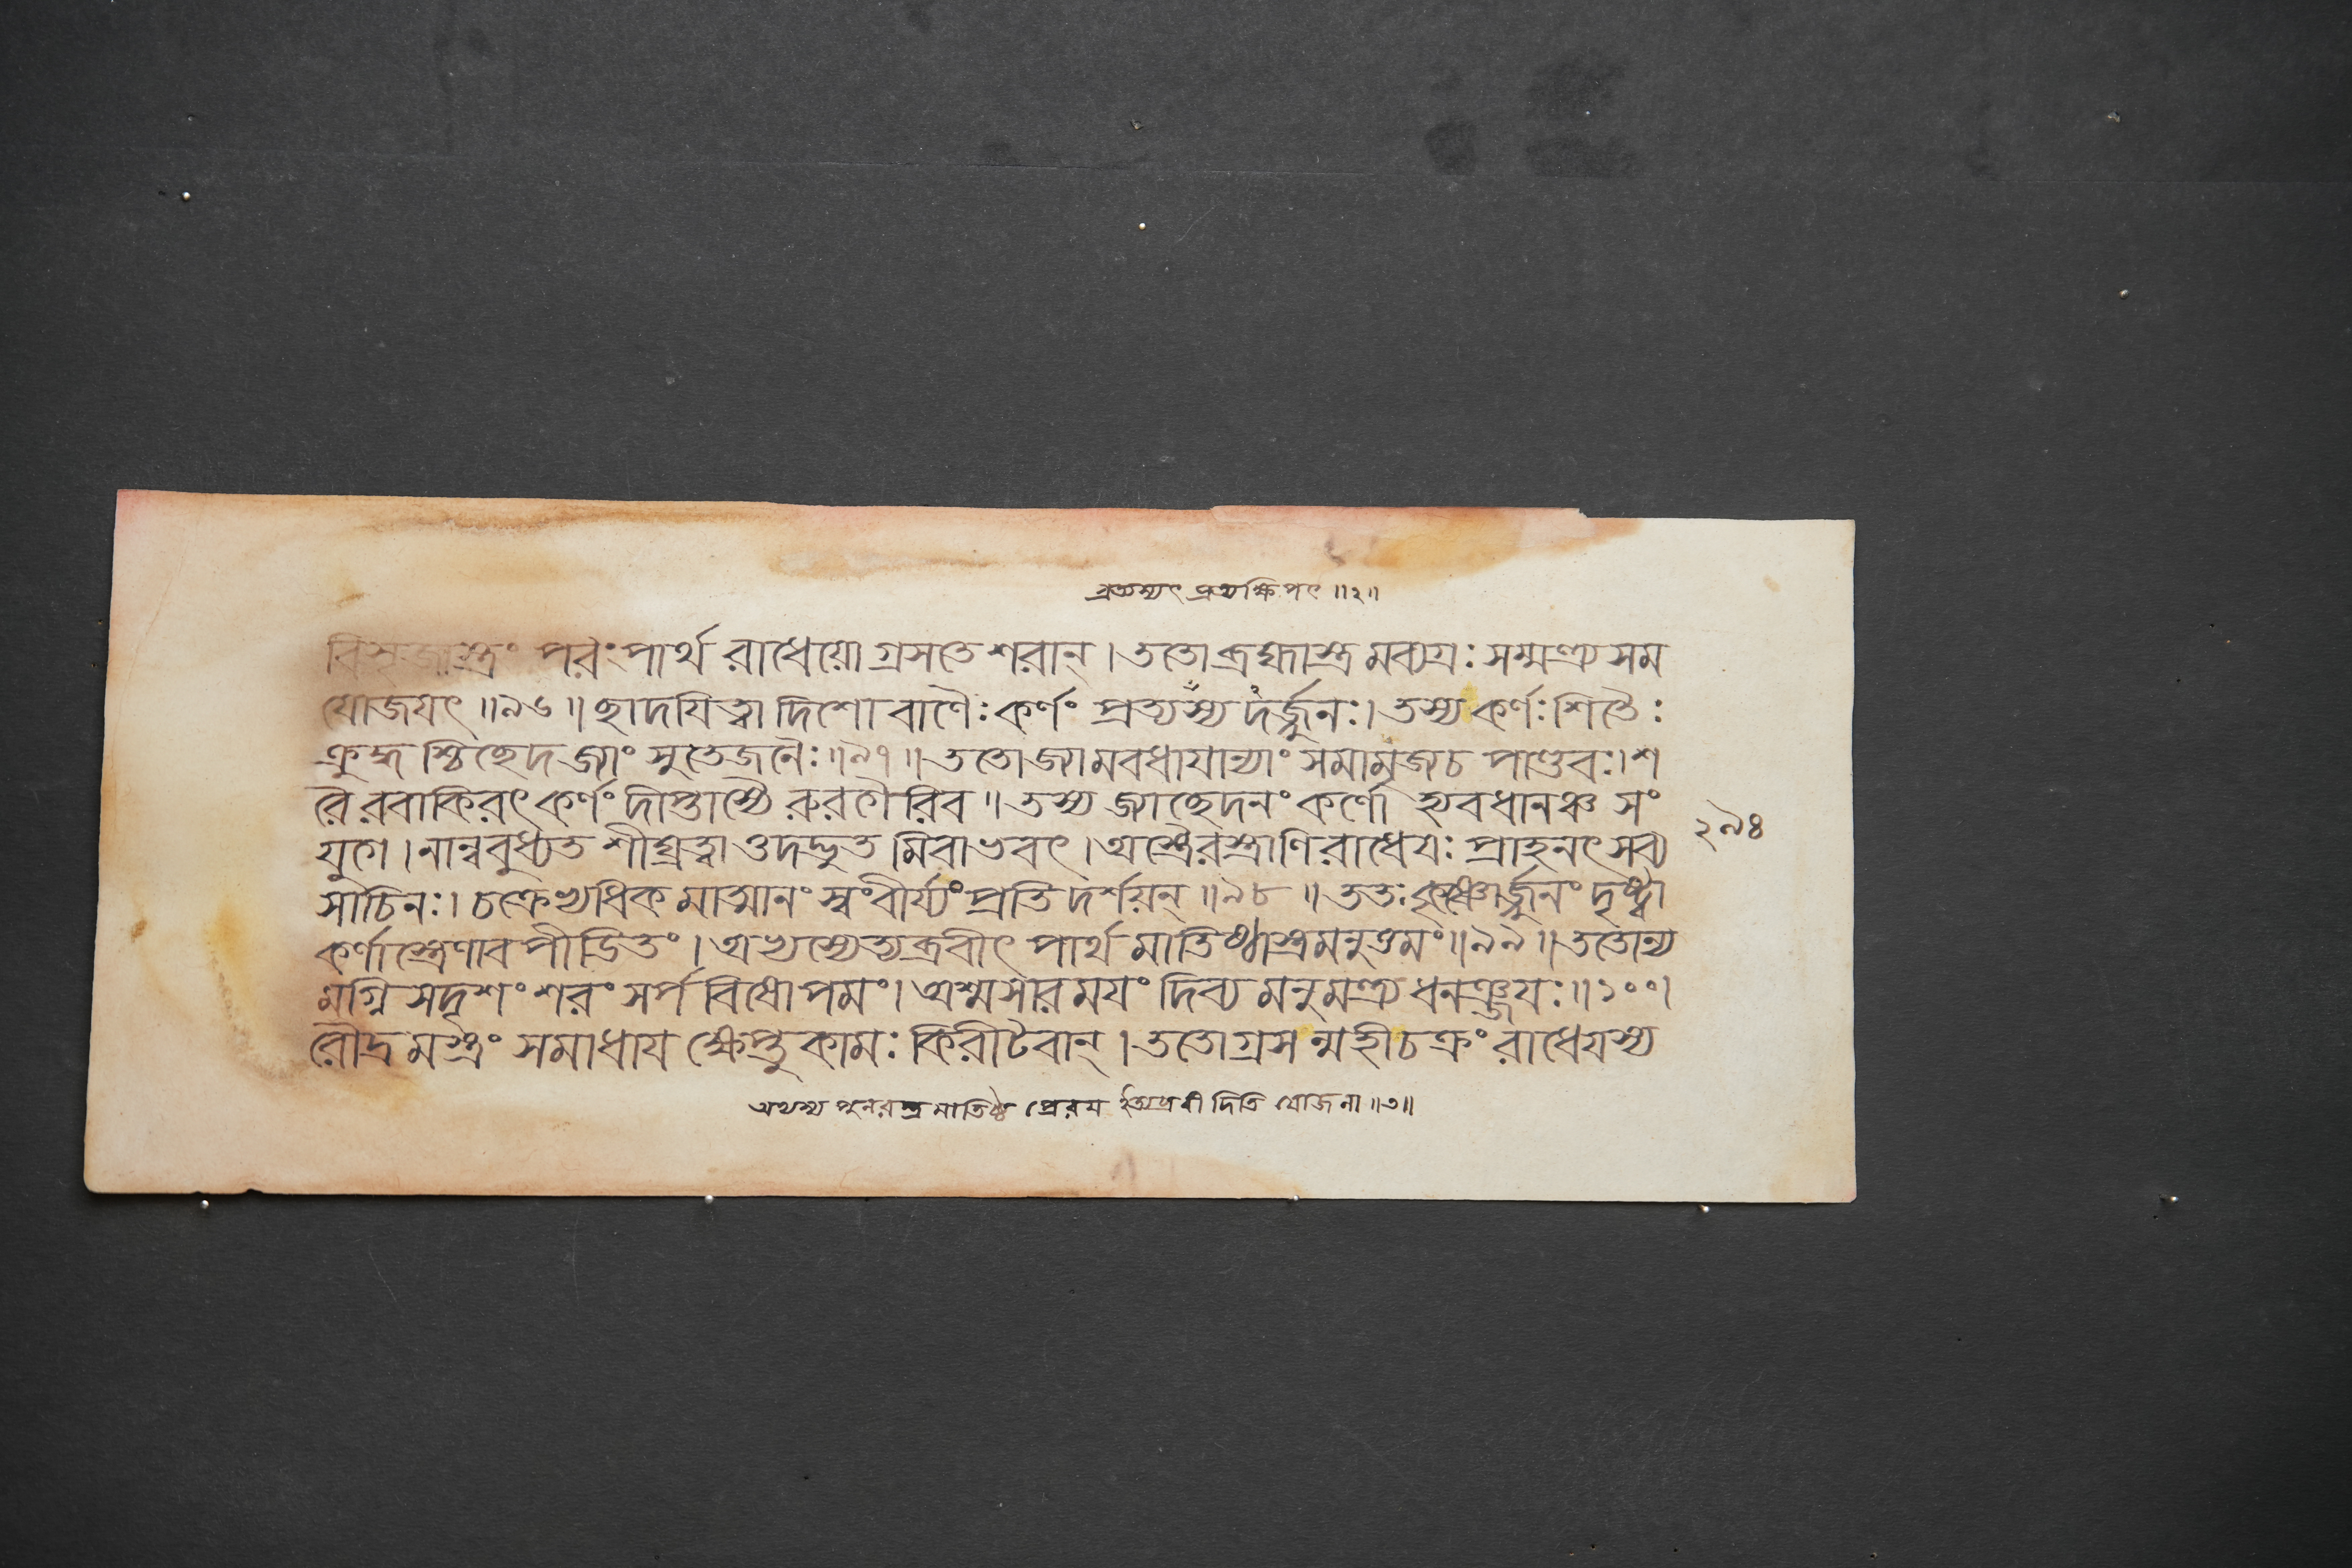 প্রত্যস্যৎ প্রত্যক্ষিপৎ ॥২॥
বিসৃজাস্ত্রং পরংপার্থ রাধেয়ো গ্রসতে শরান্। ততো ব্রহ্মাস্ত্র মব্যগ্রঃ সম্মন্ত্র্য সম
যোজযৎ ॥৯৬॥ ছাদযিত্বা দিশো বাণৈঃ কর্ণং প্রত্যস্য দর্জ্জুনঃ। তস্য কর্ণঃ শিতৈঃ
ক্রুদ্ধ শ্চিচ্ছেদ জ্যাং সুতেজনৈঃ ॥৯৭॥ ততো জ্যামবধাযান্যাং সমামৃজচ পাণ্ডবঃ। শ
রৈ রবাকিরৎ কর্ণং দীপ্তাস্যৈ রুরগৈ রিব॥ তস্য জ্যাচ্ছেদনং কর্ণো হ্যবধানঞ্চ সং
যুগে। নান্ববুধ্যত শীঘ্রত্বাত্তদদ্ভুত মিবাভবৎ। অস্ত্রৈরস্ত্রাণি রাধেযঃ প্রাহনৎ সব্য
সাচিনঃ। চক্রেপ্যধিক মাত্মানং স্বংবীর্য্যং প্রতি দর্শয়ন্ ॥৯৮॥ ততঃ কৃষ্ণোর্জ্জুনং দৃষ্ট্বা
কর্ণাস্ত্রেণাব পীডিতং। অপ্যস্যেত্যব্রবীৎ পার্থ মাতিষ্ঠাস্ত্রমনুত্তমং ॥৯৯॥ ততোন্য
মগ্নি সদৃশং শরং সর্প বিষোপমং। অশ্মসারমযং দিব্য মনুমন্ত্র্য ধনঞ্জযঃ॥১০০।
রৌদ্র মস্ত্রং সমাধায ক্ষেপ্তুকামঃ কিরীটবান্। ততোগ্রস ন্মহীচক্রং রাধেযস্য
২৯৪
যোজনা ॥৩॥